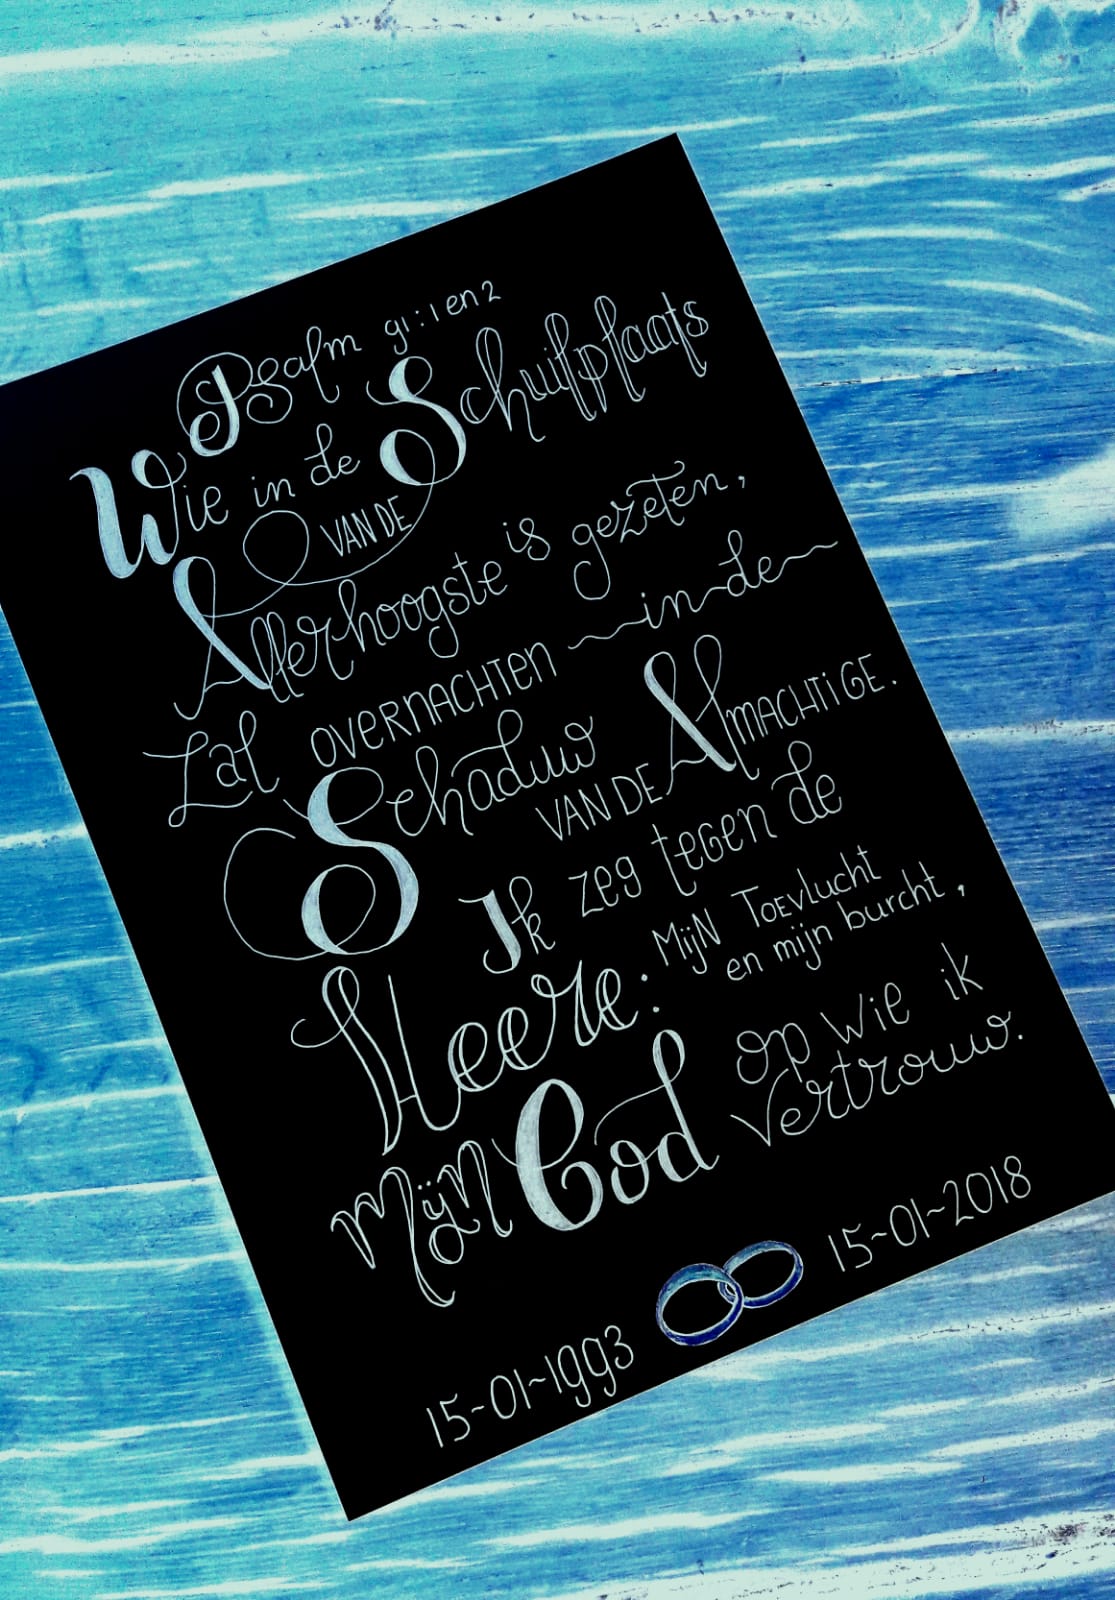 Psalm 91:1 en 2
Wie in de Schuilplaats
VAN DE
Allerhoogste is gezeten,
Zal OVERNACHTEN in de
Schaduw
VAN DE AlMACHTiGE.
Ik zeg tegen de
Heere: MijN TOEVLucht
en mijn burcht,
mijn God op wie ik
vertrouw.
15-01-1993 15-01-2018